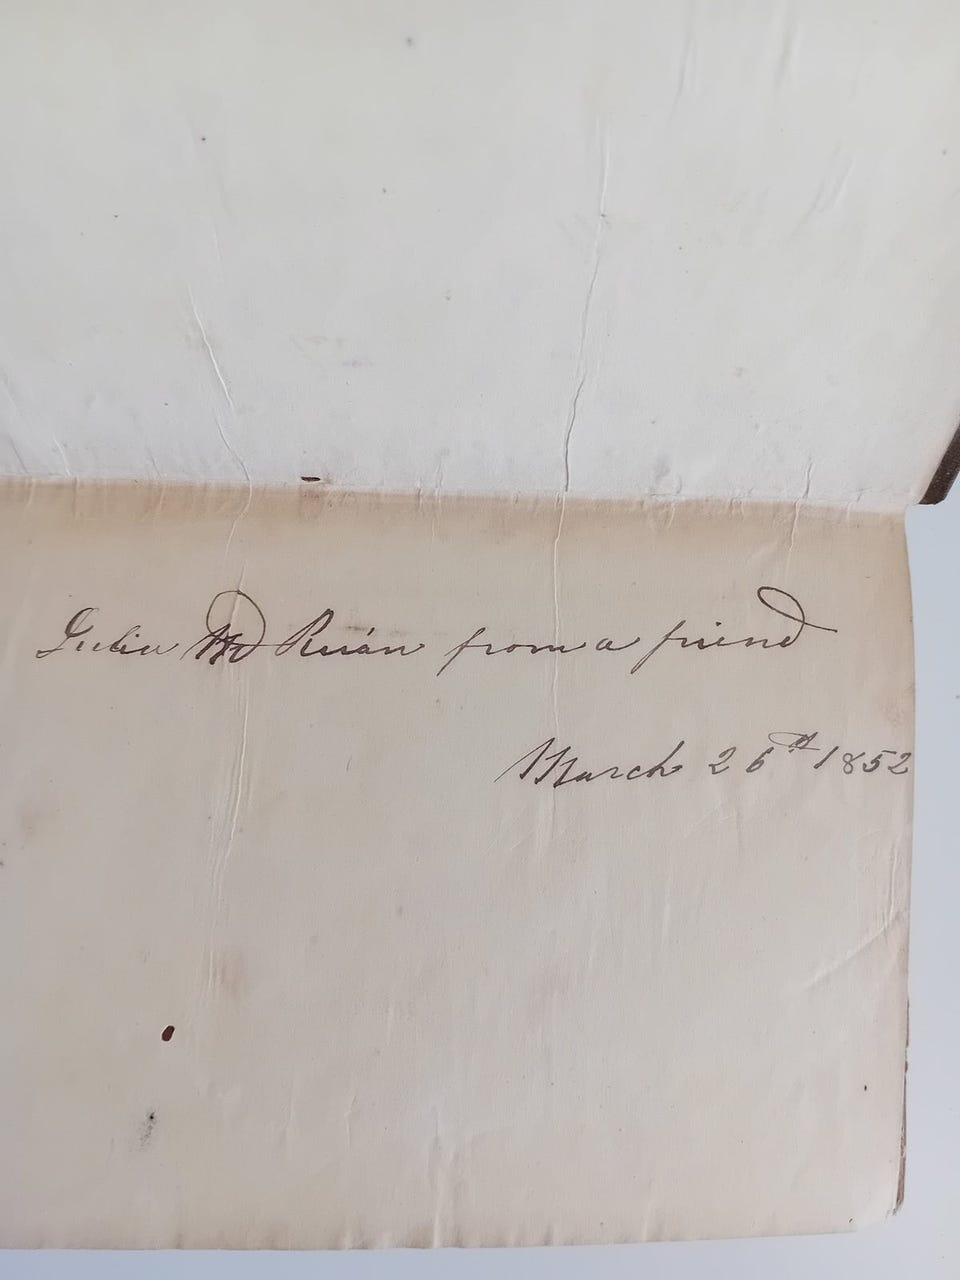 Julia Ruán from a friend
March 26th 1852